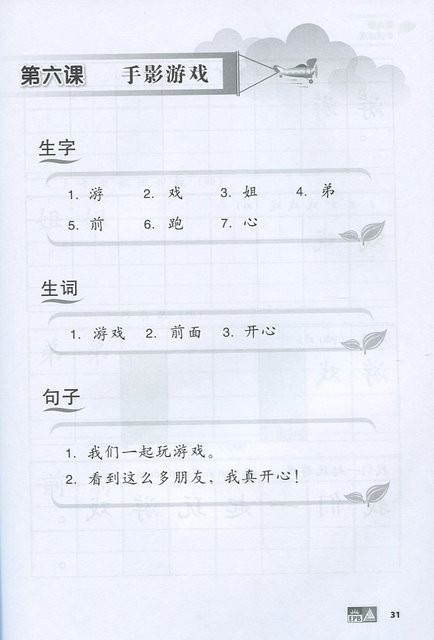 第六课 手影游戏
生字
1. 游 2. 戏 3. 姐 4. 弟
5. 前 6. 跑 7. 心
生词
1. 游戏 2. 前面 3. 开心
句子
1. 我们一起玩游戏。
2. 看到这么多朋友，我真开心！
EPB 31